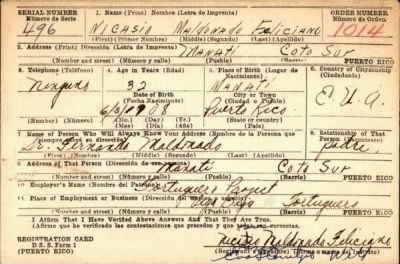 SERIAL NUMBER 1. Name (Print) Nombre (Letra de Imprenta) ORDER NUMBER
Número de Serie Número de Orden
496 Nicasio Maldonado Feliciano 1014
(First) (Primer Nombre) (Middle) (Segundo) (Last) (Apellido)
2. Address (Print) Dirección (Letra de Imprenta)
Manatí Coto Sur
(Number and street) (Número y calle) (Town) (Pueblo) (Barrio) PUERTO RICO
3. Telephone (Teléfono) 4. Age in Years (Edad) 5. Place of Birth (Lugar de Nacimiento) 6. Country of Citizenship (Ciudadanía)
Ninguno 32 Manatí
Date of Birth (Fecha Nacimiento) City or Town (Ciudad o Pueblo) E. U. A.
Puerto Rico
(Number) (Número) (Mo.) (Mes) (Day) (Día) (Yr.) (Año) (State or country) (Estado o país)
7. Name of Person Who Will Always Know Your Address (Nombre de la Persona que siempre sabrá su dirección) 8. Relationship of That Person (Parentesco)
Sr. Fernando Maldonado Padre
(First) (Nombre) (Middle) (Segundo) (Last) (Apellido)
9. Address of That Person (Dirección de esa persona)
Manatí Coto Sur
(Number and street) (Número y calle) (Town) (Pueblo) (Barrio) PUERTO RICO
10. Employer's Name (Nombre del Patrono)
11. Place of Employment or Business (Dirección del empleo, o negocio)
Vega Baja
(Number and street) (Número y calle) (Town) (Pueblo) (Barrio) PUERTO RICO
I Affirm That I Have Verified Above Answers And That They Are True.
(Afirmo que he verificado las contestaciones que preceden y que todas son correctas)
REGISTRATION CARD
D. S. S. Form 1
(PUERTO RICO)
Nicasio Maldonado Feliciano